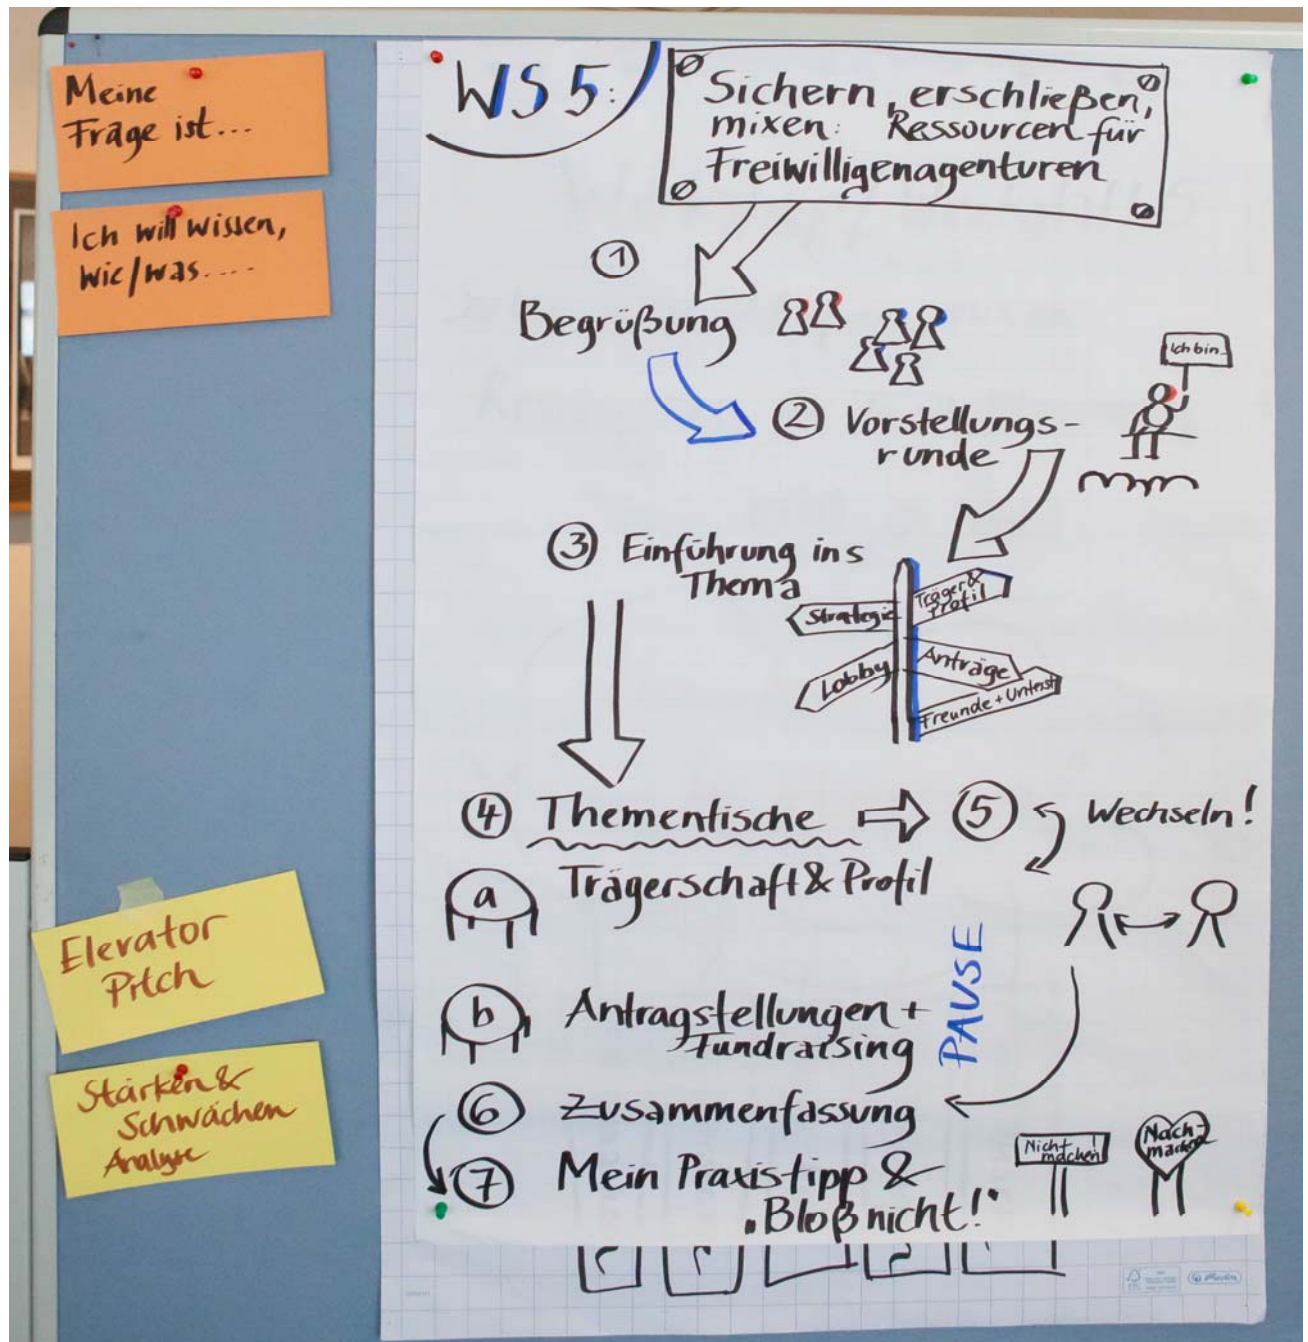 Meine
Frage ist...
Ich will wissen,
wie/was....
Elevator
Pitch
Stärken &
Schwächen
Analyse
WS 5:
Sichern, erschließen,
mixen: Ressourcen für
Freiwilligenagenturen
1
Begrüßung
Ich bin...
2 Vorstellungs-
runde
3 Einführung ins
Thema
Strategie
Träger &
Profil
Lobby
Anträge
Freunde + Unterst
4 Thementische
5 Wechseln!
a Trägerschaft & Profil
b Antragstellungen +
Fundraising
PAUSE
6 Zusammenfassung
7 Mein Praxistipp &
„Bloß nicht!"
Nicht
machen!
Nach-
machen